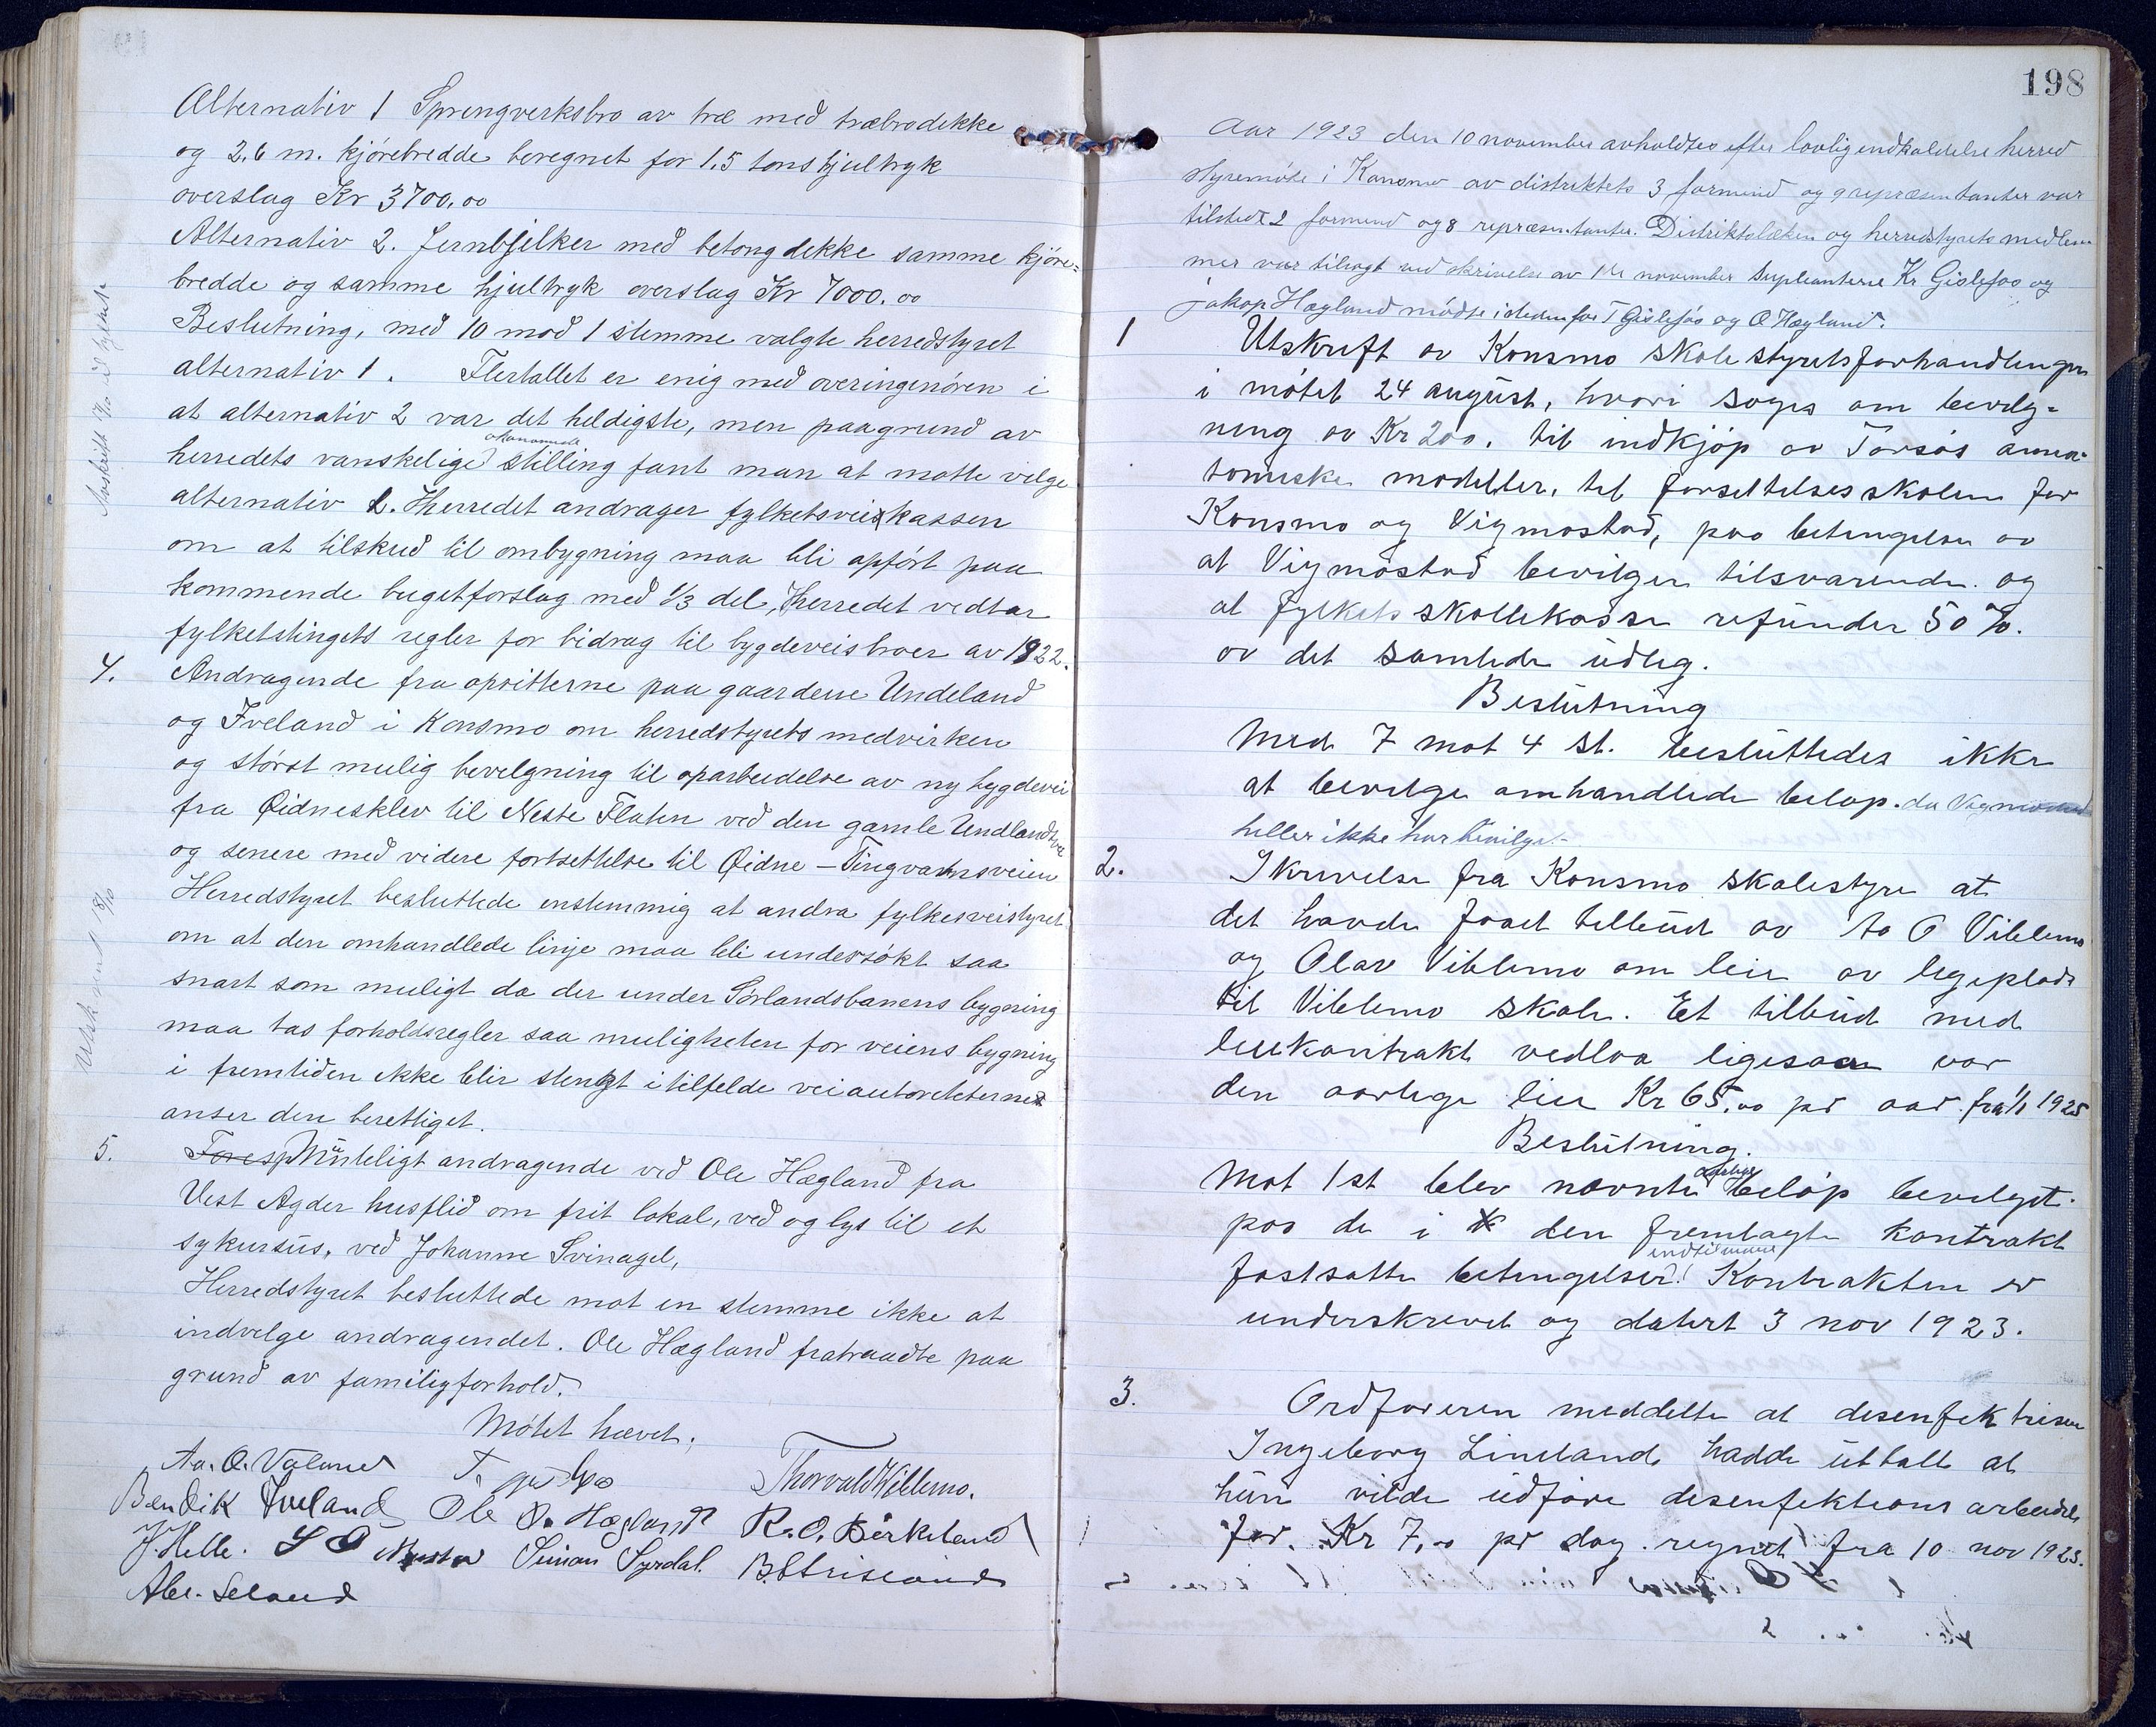 Alternativ 1 Sprengverksbro av træ med træbrodekke
og 2.6 m. kjørebredde beregnet for 1.5 tons hjultryk
overslag Kr 3700.00
Alternativ 2. Jernbjelker med betongdekke samme kjøre=
bredde og samme hjultryk overslag Kr 7000.00
Beslutning, med 10 mod 1 stemme valgte herredstyret
alternativ 1. Flertallet er enig med overingenøren i
at alternativ 2 var det heldigste, men paagrund av
herredets vanskelige økonomiske stilling fant man at motte velge
alternativ 1. Herredet andrager fylketsveikassen
om at tilskud til ombygning maa bli opført paa
kommende bugetforslag med 1/3 del, Herredet vedtar
fylketstingets regler for bidrag til bygdeveisbroer av 1922.
4. Andragende fra opsitterne paa gaardene Undeland
og Iveland i Konsmo om herredstyrets medvirken
og størst mulig bevelgning til oparbeidelse av ny bygdevei
fra Øidnesklev til Neste Flaten ved den gamle Undlandsvei
og senere med videre fortsettelse til Øidne - Tingvatnsveien
Herredstyret besluttede enstemmig at andra fylkesveistyret
om at den omhandlede linje maa bli undersøkt saa
snart som muligt da der under Sørlandsbanens bygning
maa tas forholdsregler saa muligheten for veiens bygning
i fremtiden ikke blir stengt i tilfelde veiautoriteterne
anser den berettiget.
5. Foresp Mûnteligt andragende ved Ole Hægland fra
Vest Agder husflid om frit lokal, ved og lys til et
sykursus, ved Johanne Svinagel,
Herredstyret besluttede mot en stemme ikke at
indvelge andragendet. Ole Hægland fratraadte paa
grund av familiyforhold.
Møtet hævet.
Aa. O. Våland T. Thorvald Viblemo.
Bendik Iveland Ole O. Hægland R. O. Birkeland
J. Helle. Simon Syrdal. B. Eriksland
Abr. Seland
198
Aar 1923 den 10 november avholdtes efter lovlig endkaldelse herred
styremøte i Konsmo av distriktets 3 formend og 9 repræsentanter var
tilstede 2 formend og 8 repræsentanter. Distriktslæken og herredstyrets medlem
mer var tilsagt ved skrivelse av 1ste november Supleanterne Kr Gislefos og
Jakop Hægland mødte istedenfor T Gislefos og O Hægland.
1 Utskrift av Konsmo skolestyretsforhandlinger
i møtet 24 august, hvori søges om bevilg-
ning av Kr 200. til indkjøp av Torsøs anna-
tomiske modeller, til forsettelsesskolene for
Konsmo og Vigmostad, paa betingelse av
at Vigmostad bevilger tilsvarende og
at fylkets skolekasse refunder 50 %.
av det samlede udleg.
Beslutning
Med 7 mot 4 st. besluttedes ikke
at bevilge omhandlede beløp. da Vigmostad
heller ikke har bevilget.-
2. Skrivelse fra Konsmo skolestyre at
det havde faaet tilbud av Aa O Viblemo
og Olav Viblemo om leie av legeplads
til Viblemo skole. Et tilbud med
leiekontrakt vedlaa ligesaa var
den aarlige leie Kr 65.00 pr aar fra 1/1 1925
Beslutning.
Mot 1 st blev nævnte aarlige beløp bevilget
paa de i den fremlagte kontrakt
fastsatte betingelser. Kontrakten er
underskrevet og datert 3 nov 1923.
3. Ordføreren meddelte at desenfektrisen
Ingeborg Lineland hadde uttalt at
hun vilde udføre desenfektions arbeidet
for. Kr 7,00 pr dag regnet fra 10 nov 1923.